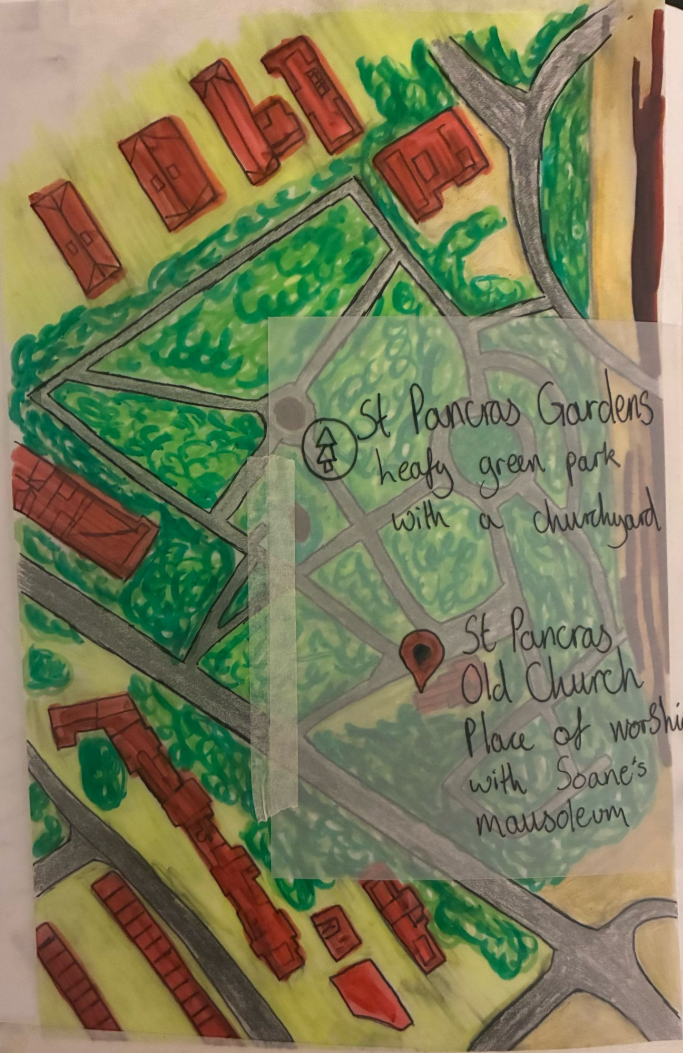 St Pancras Gardens
leafy green park
with a churchyard
St Pancras
Old Church
Place of worshi
with Soane's
mausoleum